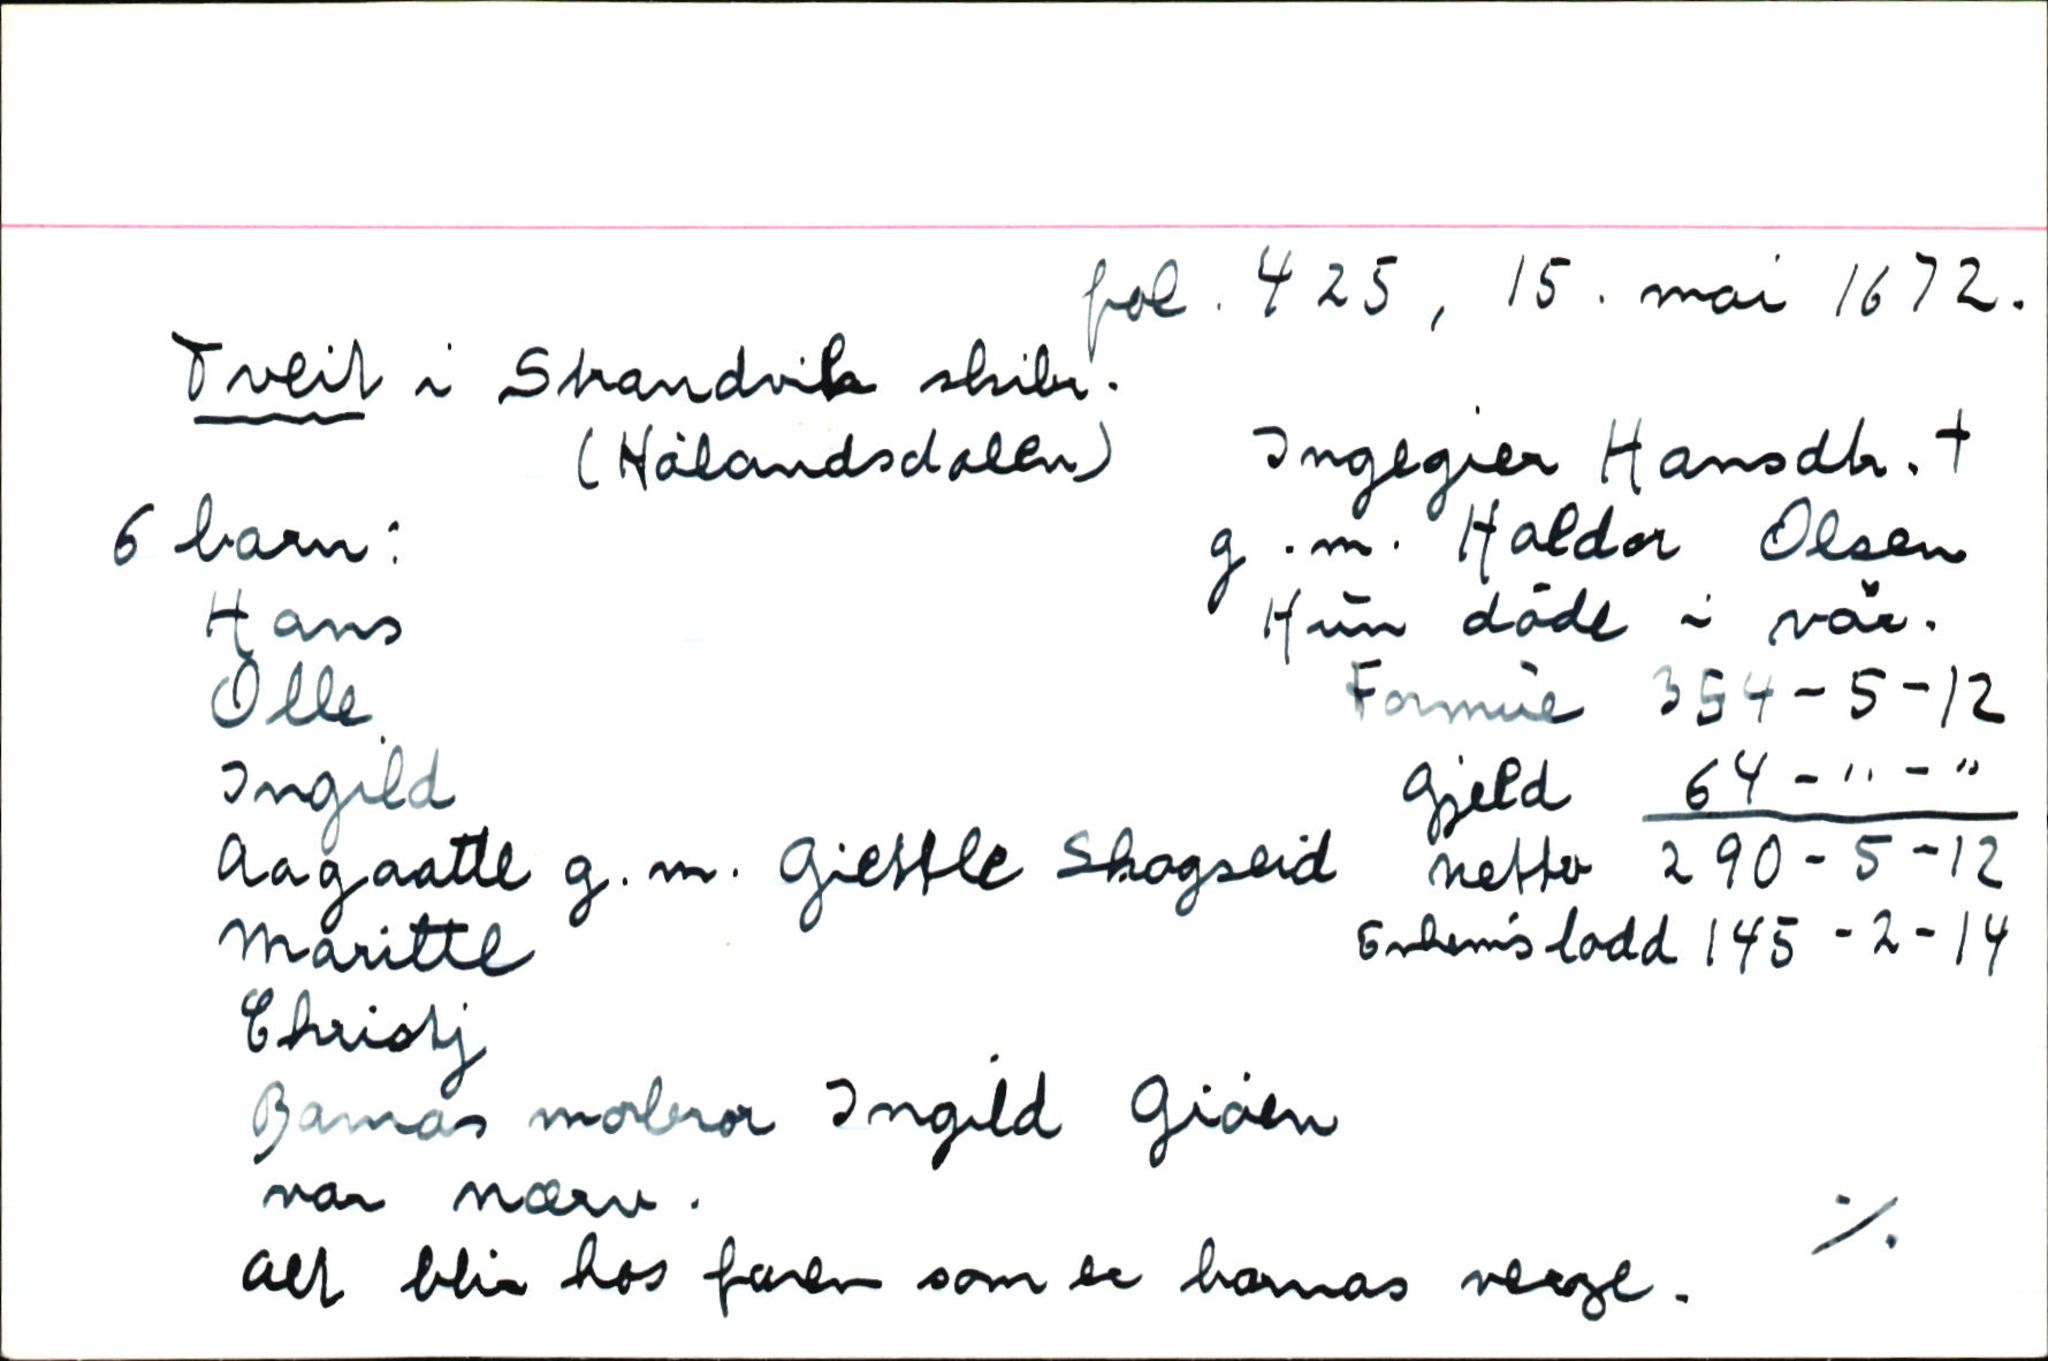 fol. 425, 15. mai 1672.
Tveit i Strandvik skibr.
(Hålandsdalen)
Ingegier Hansdtr. †
6 barn:
g.m. Haldor Olsen
Hans
Hun døde i vår.
Olle
Formue 354-5-12
Ingild
Gjeld 64-"-"
Aagaatte g.m. Giettle Skogseid
netto 290-5-12
Maritte
Enkem's lodd 145-2-14
Christj
Barnas morbror Ingild Giøen
var nærv.
Alt blir hos faren som er barnas verge.
·/.